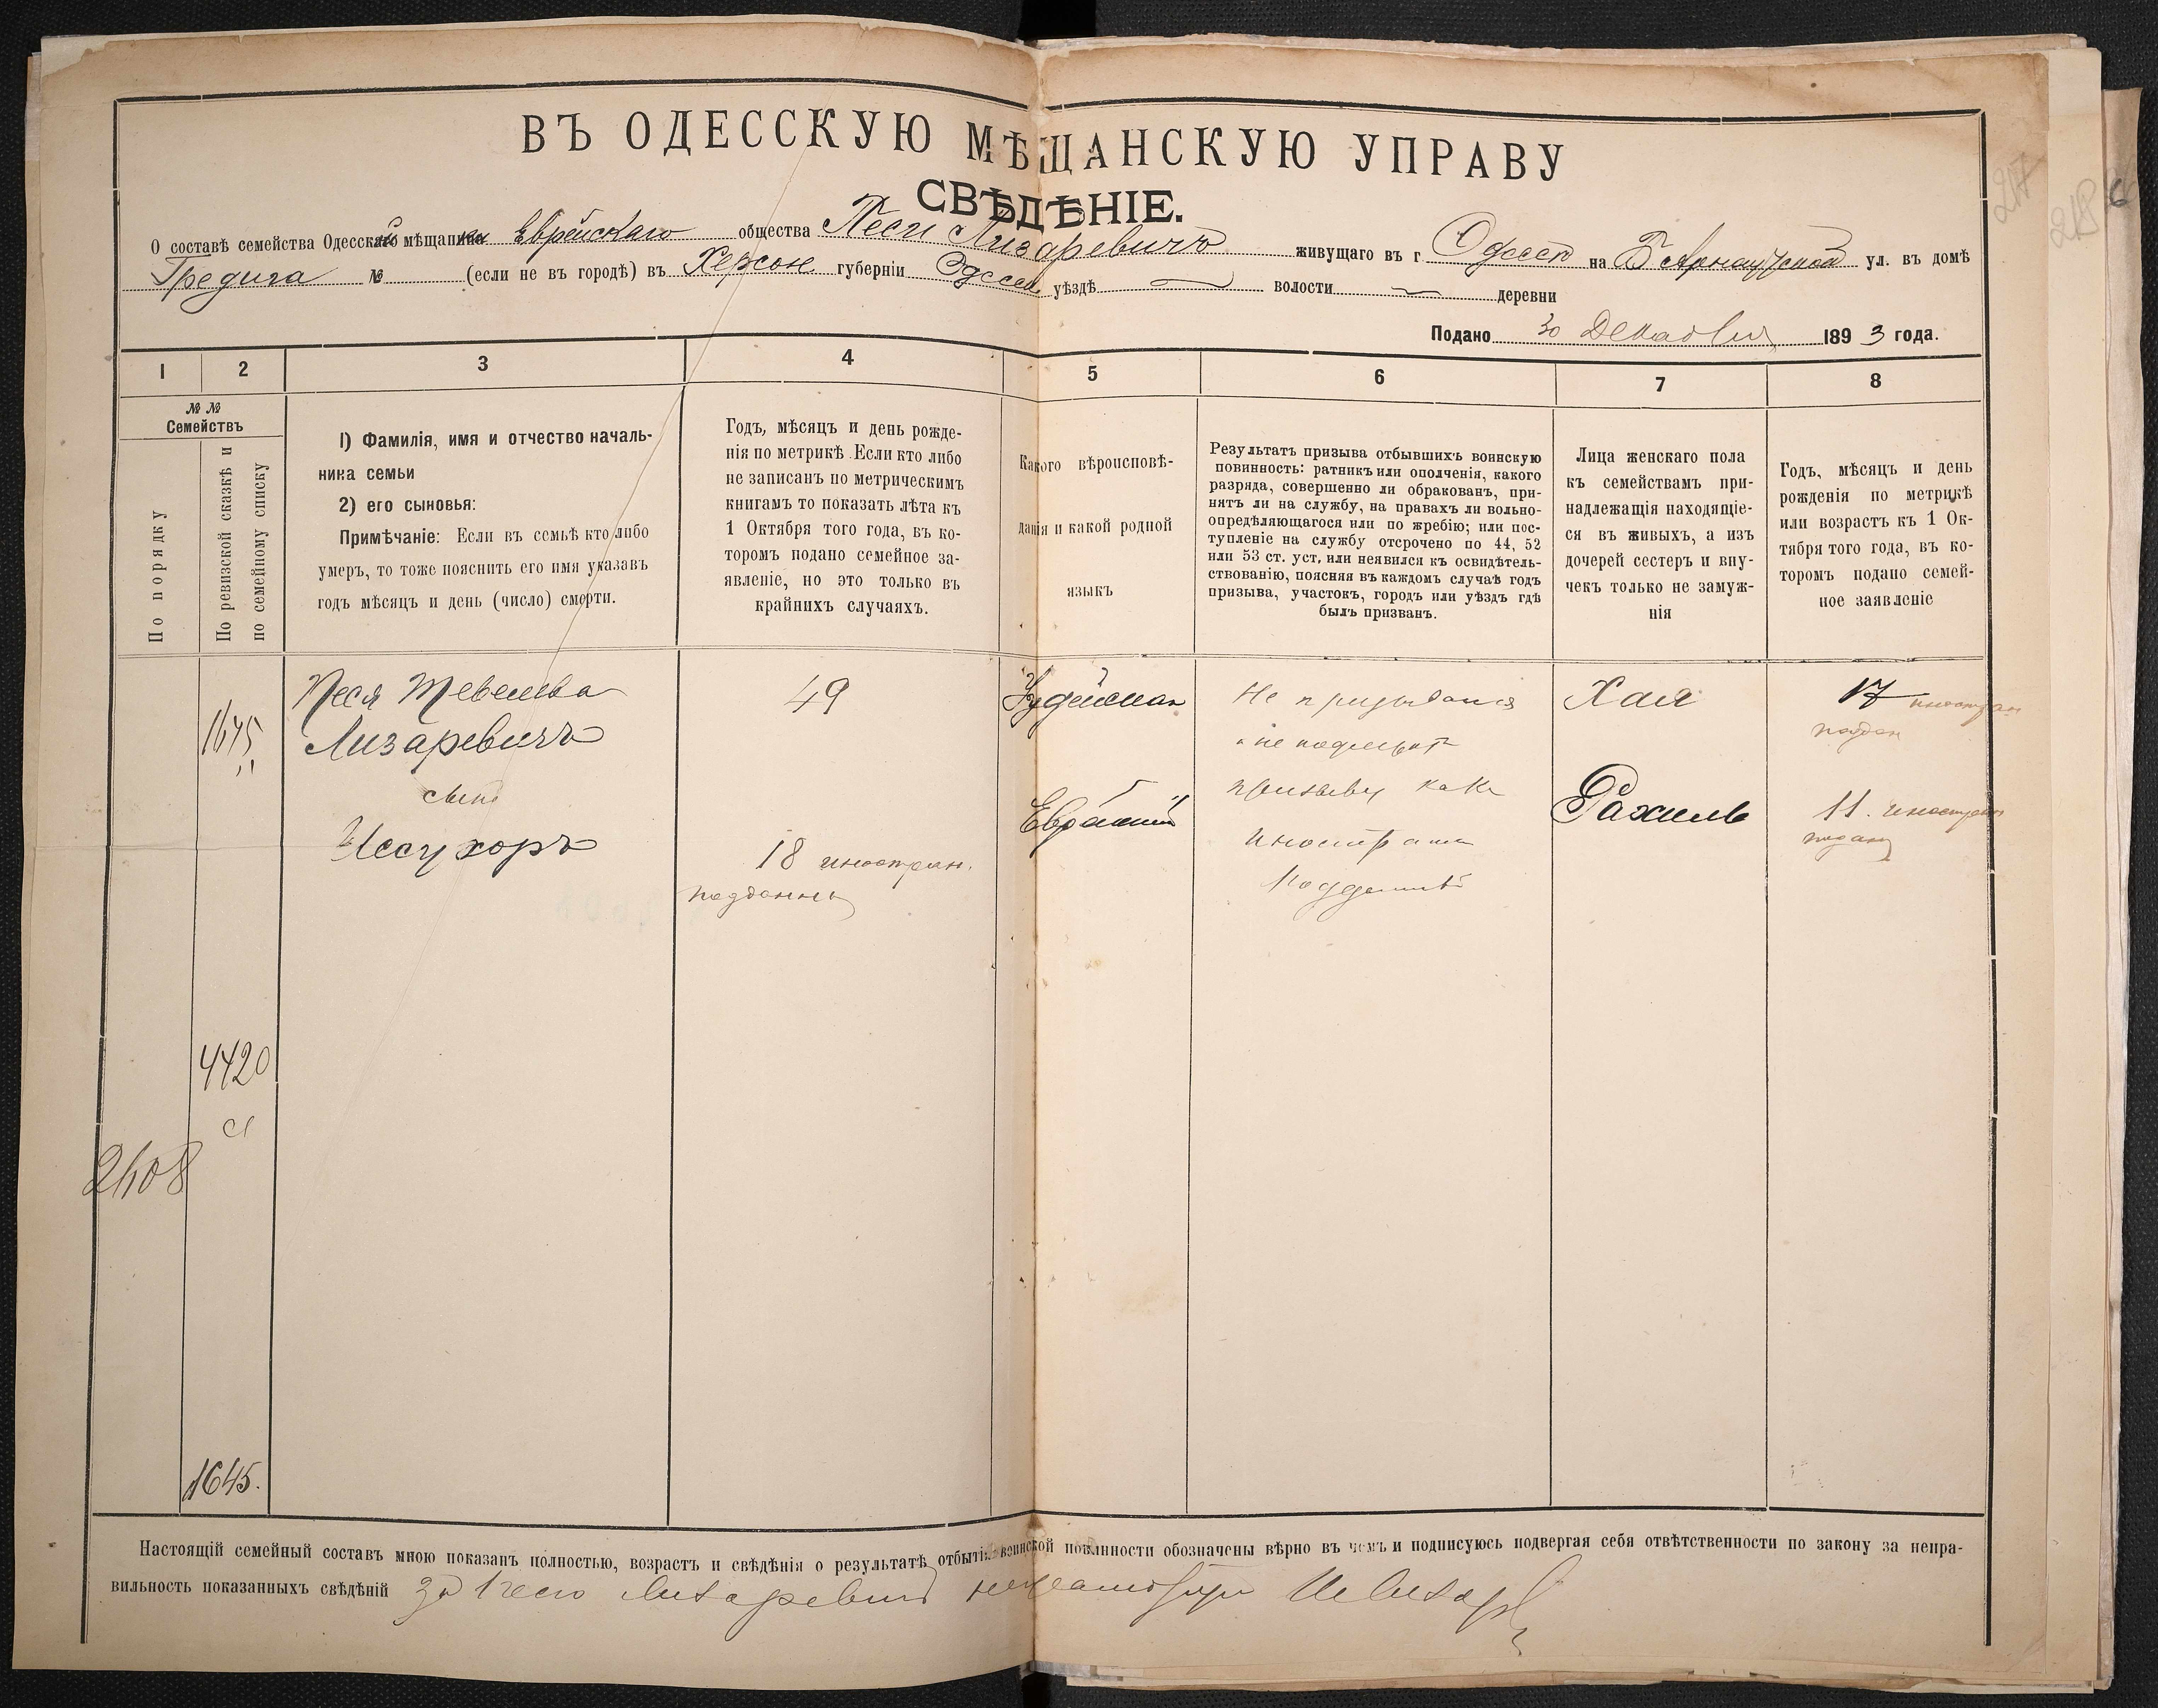 ВЪ ОДЕССКУЮ МѢЩАНСКУЮ УПРАВУ
СВѢДѢНІЕ.
О составѣ семейства Одесской мѣщанки Еврейскаго общества Песи Лизаревичъ живущаго въ г. Одессѣ на Б Арнаутской ул. въ домѣ
Гредига № (если не въ городѣ) въ Херсон губерніи Одесск уѣздѣ волости деревни
Подано 30 Декабря 1893 года.
1 2 3 4 5 6 7 8
№ №
Семействъ
По порядку
По ревизской сказкѣ и
по семейному списку
1) Фамилія, имя и отчество началь-
ника семьи
2) его сыновья:
Примѣчаніе: Если въ семьѣ кто либо
умеръ, то тоже пояснить его имя указавъ
годъ мѣсяцъ и день (число) смерти.
Годъ, мѣсяцъ и день рожде-
нія по метрикѣ. Если кто либо
не записанъ по метрическимъ
книгамъ то показать лѣта къ
1 Октября того года, въ ко-
торомъ подано семейное за-
явленіе, но это только въ
крайнихъ случаяхъ.
Какого вѣроисповѣ-
данія и какой родной
языкъ
Результатъ призыва отбывшихъ воинскую
повинность: ратникъ или ополченія, какого
разряда, совершенно ли обракованъ, при-
нятъ ли на службу, на правахъ ли вольно-
опредѣляющагося или по жребію; или пос-
тупленіе на службу отсрочено по 44, 52
или 53 ст. уст, или неявился къ освидѣтель-
ствованію, поясняя въ каждомъ случаѣ годъ
призыва, участокъ, городъ или уѣздъ гдѣ
былъ призванъ.
Лица женскаго пола
къ семействамъ при-
надлежащія находящіе-
ся въ живыхъ, а изъ
дочерей сестеръ и вну-
чекъ только не замуж-
нія
Годъ, мѣсяцъ и день
рожденія по метрикѣ
или возрастъ къ 1 Ок-
тября того года, въ ко-
торомъ подано семей-
ное заявленіе
1645
Песя Тевелева
Лизаревичъ
сынъ
Иссухоръ
49
18 иностран.
подданны
Іудейская
Еврейскій
Не призывался
и не подлежитъ
призыву какъ
иностранный
подданный
Хая
Рахиль
17 иностран
поддан
11. иностран
поддан
4420
2608
1645.
Настоящій семейный составъ мною показанъ полностью, возрастъ и свѣдѣнія о результатѣ отбытія воинской повинности обозначены вѣрно въ чемъ и подписуюсь подвергая себя отвѣтственности по закону за непра-
вильность показанныхъ свѣдѣній за Песю Лизаревичъ неграмотную
217
218